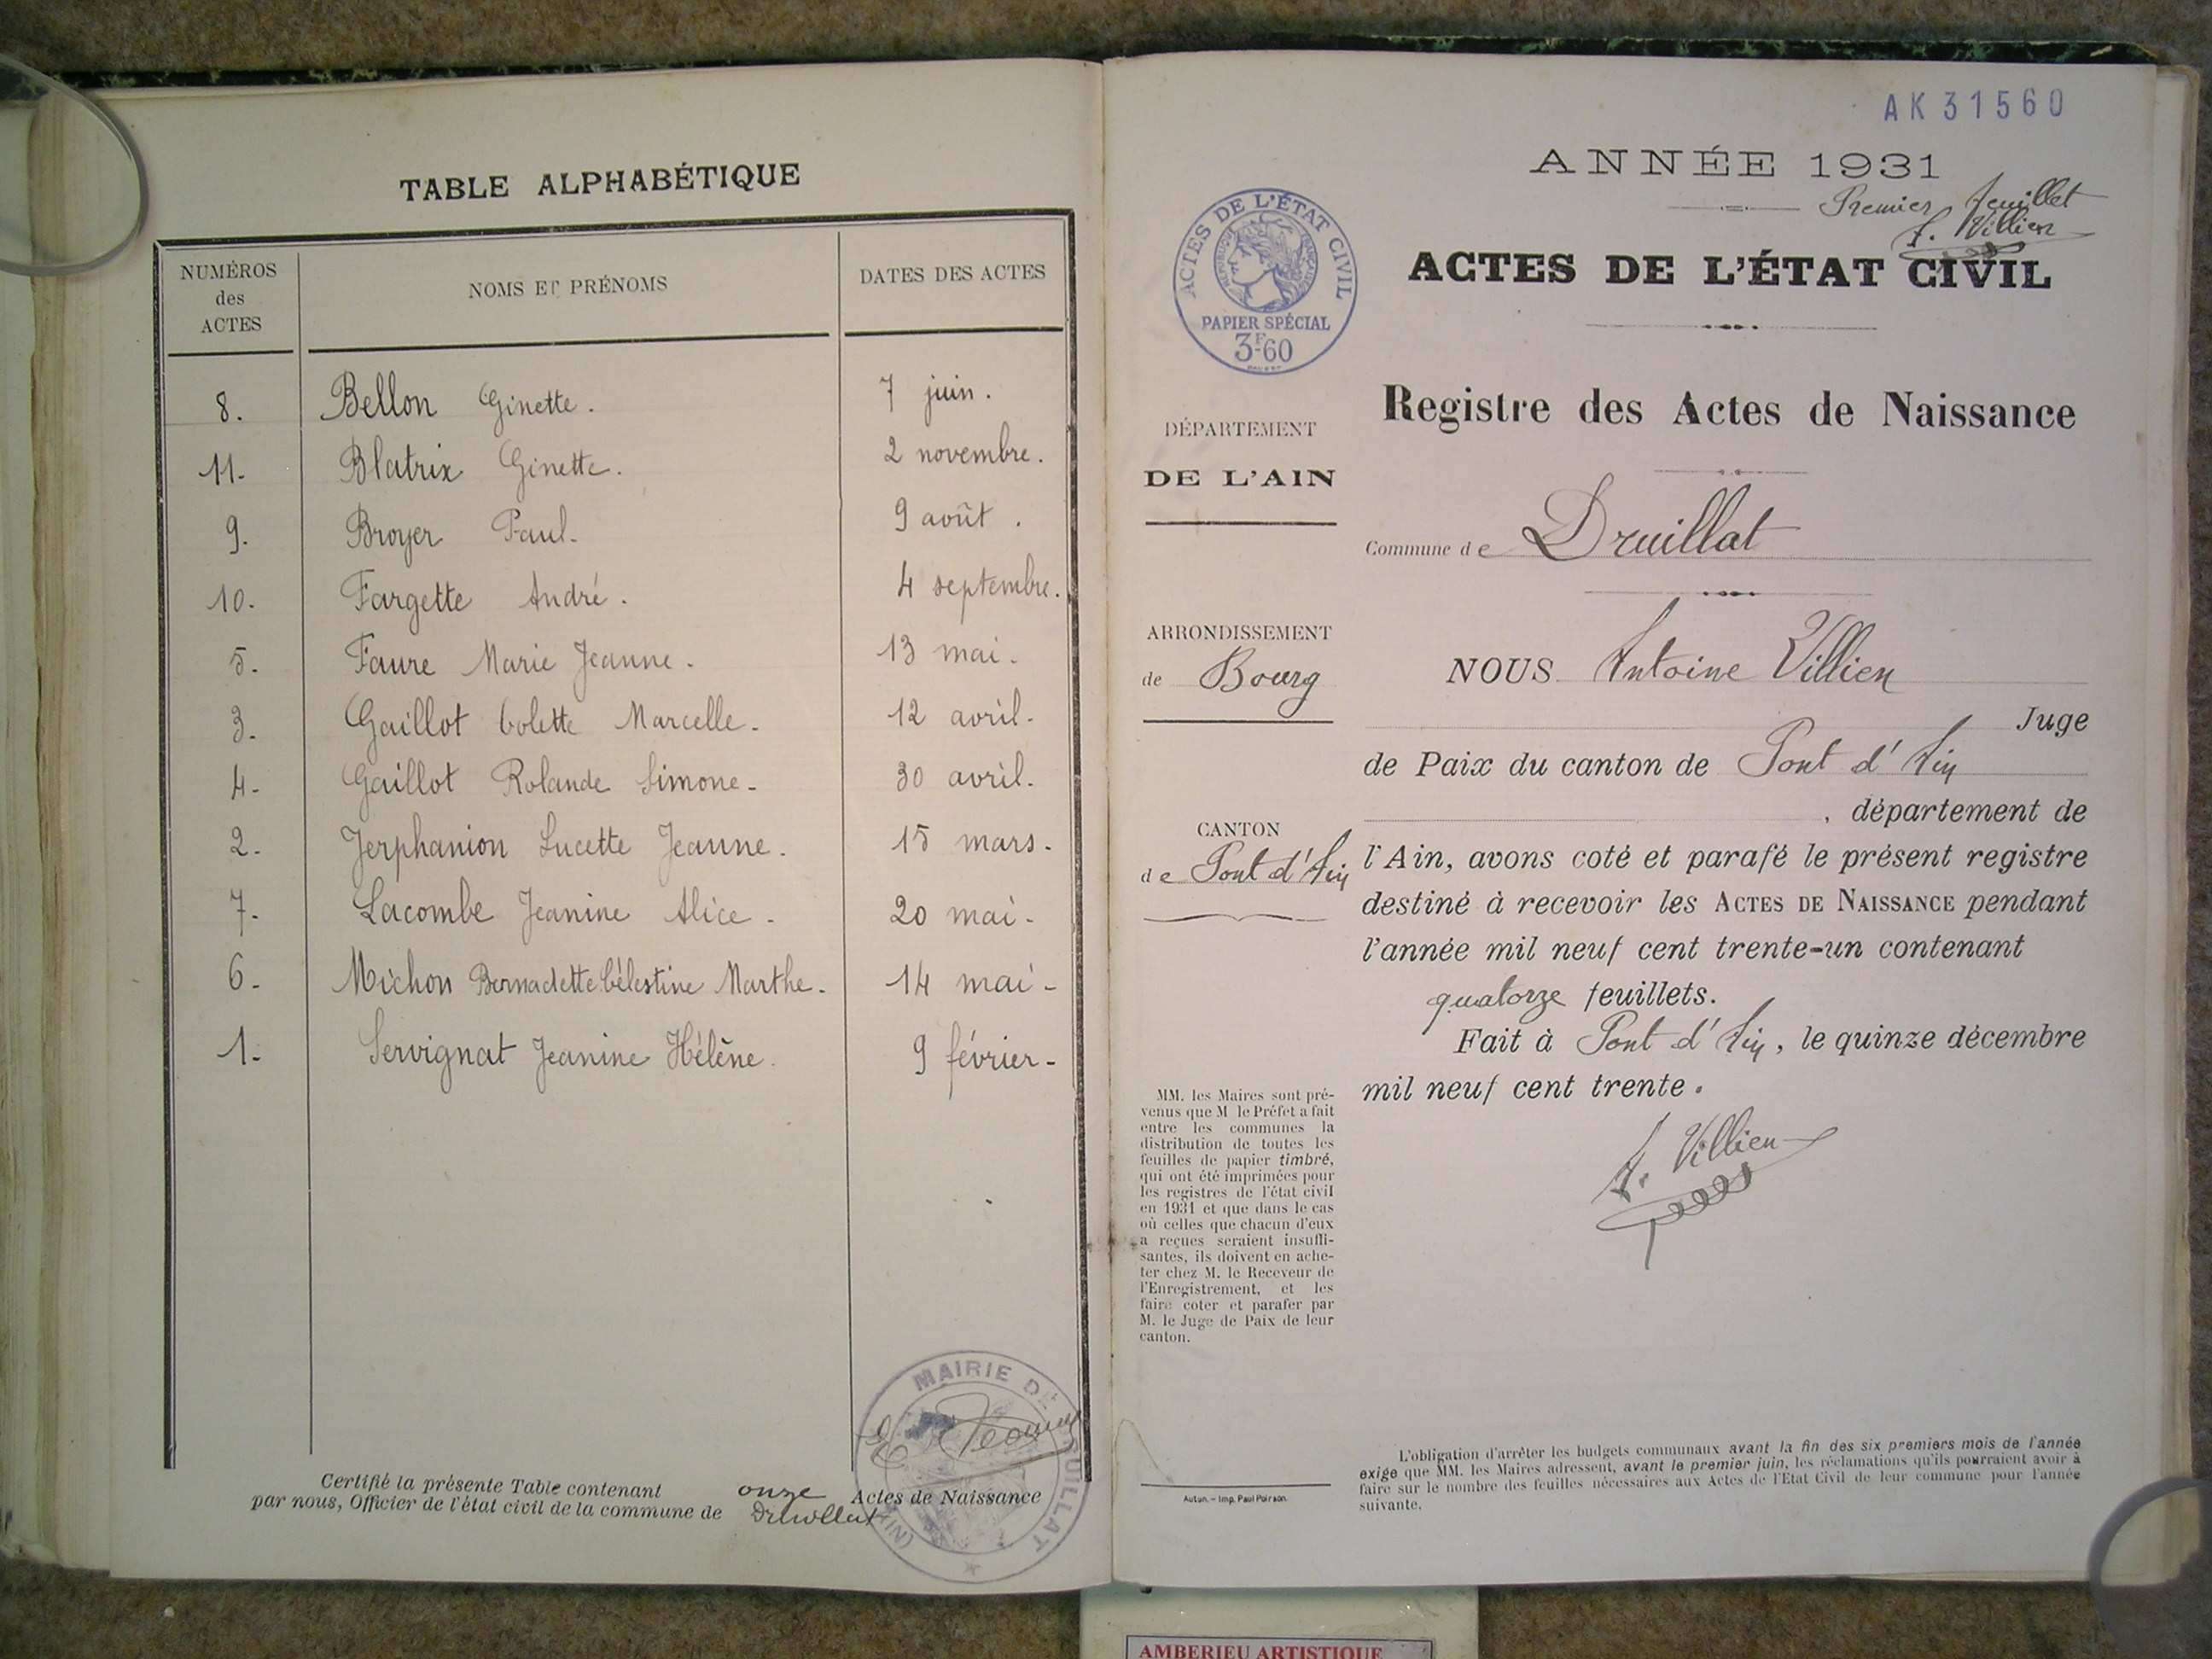 TABLE ALPHABÉTIQUE
NUMÉROS des ACTES
NOMS ET PRÉNOMS
DATES DES ACTES
8. Bellon Ginette. 7 juin.
11. Blatrix Ginette. 2 novembre.
9. Broyer Paul. 9 août.
10. Fargette André. 4 septembre.
5. Faure Marie Jeanne. 13 mai.
3. Gaillot Colette Marcelle. 12 avril.
4. Gaillot Rolande Simone. 30 avril.
2. Jerphanion Lucette Jeanne. 15 mars.
7. Lacombe Jeanine Alice. 20 mai.
6. Michon Bernadette Célestine Marthe. 14 mai.
1. Servignat Jeanine Hélène. 9 février.
Certifié la présente Table contenant onze Actes de Naissance
par nous, Officier de l'état civil de la commune de Druillat
MAIRIE DE DRUILLAT
(AIN)
AK31560
ANNÉE 1931
Premier feuillet
A. Villien
ACTES DE L'ÉTAT CIVIL
ACTES DE L'ÉTAT CIVIL
RÉPUBLIQUE FRANÇAISE
PAPIER SPÉCIAL
3F60
Registre des Actes de Naissance
DÉPARTEMENT
DE L'AIN
Commune de Druillat
ARRONDISSEMENT
de Bourg
NOUS Antoine Villien
Juge
de Paix du canton de Pont d'Ain
, département de
CANTON
de Pont d'Ain
l'Ain, avons coté et parafé le présent registre
destiné à recevoir les ACTES DE NAISSANCE pendant
l'année mil neuf cent trente-un contenant
quatorze feuillets.
Fait à Pont d'Ain, le quinze décembre
mil neuf cent trente.
A. Villien
MM. les Maires sont pré-
venus que M le Préfet a fait
entre les communes la
distribution de toutes les
feuilles de papier timbré,
qui ont été imprimées pour
les registres de l'état civil
en 1931 et que dans le cas
où celles que chacun d'eux
a reçues seraient insuffi-
santes, ils doivent en ache-
ter chez M. le Receveur de
l'Enregistrement, et les
faire coter et parafer par
M. le Juge de Paix de leur
canton.
Autun. – Imp. Paul Poirson.
L'obligation d'arrêter les budgets communaux avant la fin des six premiers mois de l'année
exige que MM. les Maires adressent, avant le premier juin, les réclamations qu'ils pourraient avoir à
faire sur le nombre des feuilles nécessaires aux Actes de l'Etat Civil de leur commune pour l'année
suivante.
AMBERIEU ARTISTIQUE